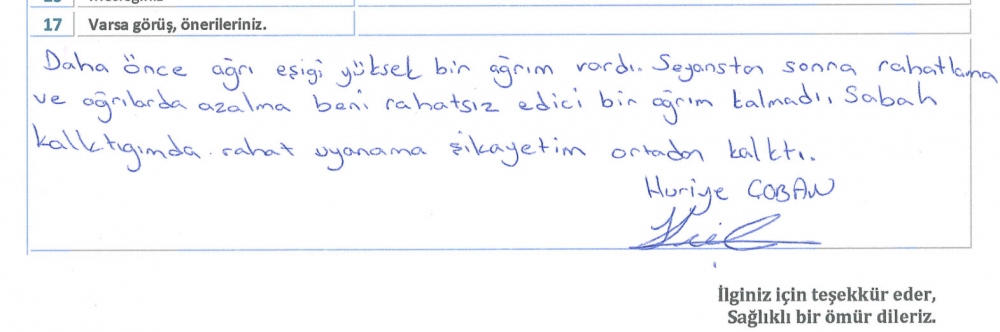 17 Varsa görüş, önerileriniz.
Daha önce ağrı eşigi yüksek bir ağrım vardı. Seganston sonra rahatlama
ve ağrılarda azalma beni rahatsız edici bir ağrım kalmadı, Sabah
kalktıgımda rahat uyanama şikayetim ortadan kalktı.
Huriye ÇOBAN
İlginiz için teşekkür eder,
Sağlıklı bir ömür dileriz.